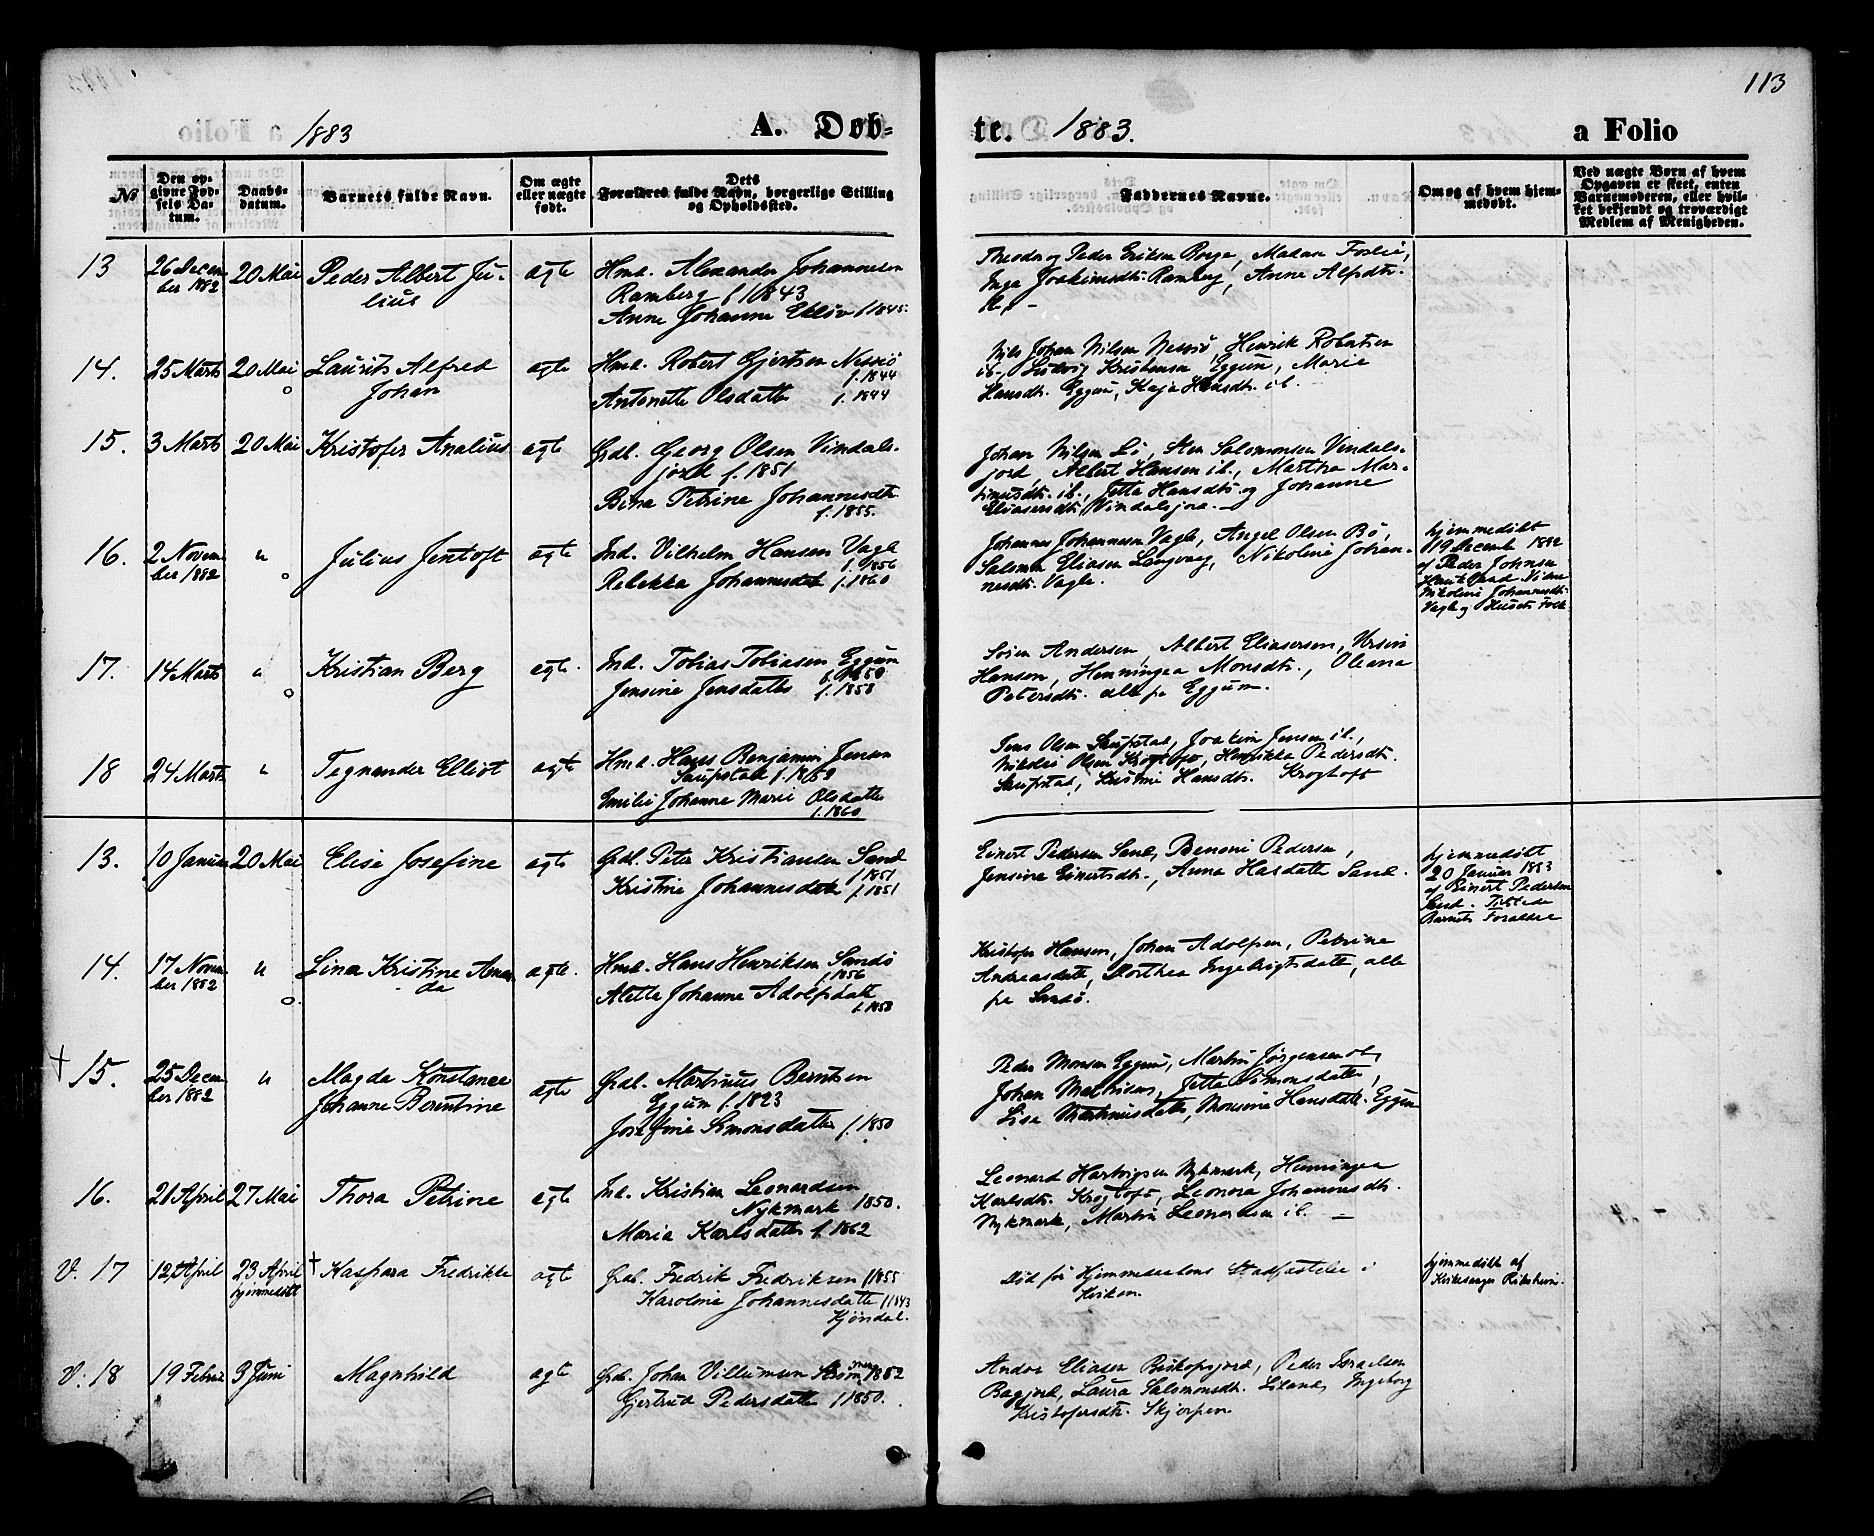 113
1883 A. Døb-
te. 1883. a Folio
No
Den op-
givne Fød-
sels Da-
tum.
Daabs-
datum.
Barnets fulde Navn.
Om ægte
eller uægte
født.
Dets
Forældres fulde Navn, borgerlige Stilling
og Opholdssted.
Faddernes Navne.
Om og af hvem hjem-
medøbt.
Ved uægte Børn af hvem
Opgaven er skeet, enten
Barnemoderen, eller hvil-
ket bekjendt og troværdigt
Medlem af Menigheden.
13
26 Decem
ber 1882
20 Mai
Peder Albert Ju-
lius
ægte
Hmd. Alexander Johannesen
Ramberg f. 1843
Anne Johanne f. 1845.
Theodor og Peder Eriksen Borge, Madam
Inga Joakimsdtr. Ramberg, Anne
14.
25 Marts
20 Mai
Laurits Alfred
Johan
ægte
Hmd. Robert Gjertsen Nessjø
f. 1844
Antonette Olsdatter f. 1844
Nils Johan Nilsen Nessjø, Henrik Robertsen
ib., Ludvig Kristensen Eggum, Marie
Hansdt. Eggum, Kaja Hansdt. ib.
15.
3 Marts
20 Mai
Kristofer Analius
ægte
Grdl. Georg Olsen Vindals-
jord f. 1851
Bina Petrine Johannesdtr.
f. 1855.
Johan Nilsen Sten Salomonsen Vendals-
jord, Albert Hansen ib., Martha Mar-
tinusdt. ib., Jetta Hansdtr. og Johanne
Eliasersdt. Vindalsjord.
16.
2 Novem
ber 1882
"
Julius Jentoft
ægte
Ind. Vilhelm Hansen Vagle
f. 1856
Rebekka Johannesdatter f. 1860
Johannes Johannesen Vagle, Angel Olsen Bø,
Salomon Eliasen Nikoline Johan-
nesdt. Vagle.
hjemmedøbt
19 Decemb 1882
af Peder Johnsen
Nikoline Johannesdt.
Vagle og Husets Folk
17.
14 Marts
"
Kristian Berg
ægte.
Ind. Tobias Tobiasen Eggum
f. 1850
Jensine Jensdatter f. 1858
Søren Andersen, Albert Eliasersen,
Hansen, Henningea Monsdt., Oleana
Petersdt. alle pr Eggum.
18
24 Marts
"
Tegnander Elliot
ægte
Hmd. Hans Benjamin Jensen
Saupstad f. 1859
Emilie Johanne Marie Olsdatter
f. 1860
Jens Olsen Saupstad, Joakim Jensen ib.,
Nikolai Olsen Krogtoft, Henrikka Pedersdt.
Saupstad, Kristine Hansdt. Krogtoft
13.
10 Januar
20 Mai
Elise Josefine
ægte
Grdl. Peter Kristiansen Sand
f 1851
Kristine Johannesdatter f. 1851
Einert Pedersen Sand, Benoni Pedersen,
Jensine Einertsdt., Anna Hasdatter Sand.
hjemmedøbt
20 Januar 1883
af Einert Pedersen
Sand. Tilstede
Barnets Forældre
14.
17 Novem
ber 1882
"
Lina Kristine Aman
da
ægte.
Hmd. Hans Henriksen Sandø
f. 1856
Alette Johanne Adolfsdatter
f. 1850
Kristofer Hansen, Johan Adolfsen, Petrine
Andreasdatter, Dorthea Ingebrigtsdatter, alle
pr Sandø.
† 15.
25 Decem
ber 1882
"
Magda Konstance
Johanne Berntine
ægte
Grdl. Martinus Berntsen
Eggum f. 1823
Josefine Simonsdatter f. 1850
Peder Monsen Eggum, Martin Jørgensen ib,
Johan Mathisen, Jetta Simonsdatter,
Lise Martinusdatter, Monsine Hansdatter Eggum
16.
21 April
27 Mai
Thora Petrine
ægte
Ind. Kristian Leonardsen
Nykmark 1850.
Maria Karlsdatter f. 1862
Leonard Hartvigsen Nykmark, Henningea
Karlsdt. Krogtoft, Leonora Johannesdt.
Nykmark, Martin Leonardsen ib.
V. 17
12 April
23 April
hjemmedøbt
† Kaspara Fredrikke
ægte
Grdb. Fredrik Fredriksen f 1855
Karoline Johannesdatter f 1843
Kjøndal.
Død før Hjemmedaabens Stadfæstelse i
Kirken.
hjemmedøbt af
Kirkesanger
V. 18
19 Febru
3 Juni
Magnhild
ægte
Grdb. Johan Villumsen 1852
Gjertrud Pedersdatter f 1850.
Andor Eliasen Biskopsjord, Peder Israelsen
Bagjord, Laura Salomonsdt. Liland, Ingeborg
Kristofersdt. Skjerpen